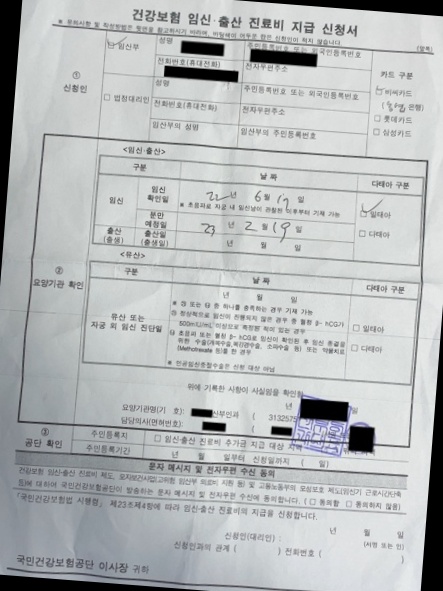 건강보험 임신·출산 진료비 지급 신청서
※ 유의사항 및 작성방법은 뒷면을 참고하시기 바라며, 바탕색이 어두운 란은 신청인이 적지 않습니다. (앞쪽)
① 신청인
임산부
성명
주민등록번호 또는 외국인등록번호
전화번호(휴대전화)
전자우편주소
법정대리인
성명
주민등록번호 또는 외국인등록번호
전화번호(휴대전화)
전자우편주소
임산부의 성명
임산부의 주민등록번호
카드 구분
비씨카드
( 은행)
롯데카드
삼성카드
② 요양기관 확인
<임신·출산>
구분
날 짜
다태아 구분
임신
임신 확인일
22년 6월 17일
※ 초음파로 자궁 내 임신낭이 관찰된 이후부터 기재 가능
분만 예정일
23년 2월 19일
출산 (출생)
출산일 (출생일)
년 월 일
일태아
다태아
<유산>
구분
날 짜
다태아 구분
유산 또는 자궁 외 임신 진단일
년 월 일
※ ㉮ 또는 ㉯ 중 하나를 충족하는 경우 기재 가능
㉮ 정상적으로 임신이 진행되지 않은 경우 중 혈청 β- hCG가 500mIU/mL 이상으로 측정된 적이 있는 경우
㉯ 초음파 또는 혈청 β- hCG로 임신이 확인된 후 임신 종결을 위한 수술(개복수술, 복강경수술, 소파수술 등) 또는 약물치료(Methotrexate 등)를 한 경우
※ 인공임신중절수술은 신청 대상 아님
일태아
다태아
위에 기록한 사항이 사실임을 확인함
년 일
요양기관명(기 호): 산부인과 ( 3132575
담당의사(면허번호): (
③ 공단 확인
주민등록지
임신·출산 진료비 추가금 지급 대상 지역
주민등록기간
년 월 일부터 신청일까지 ( 일)
문자 메시지 및 전자우편 수신 동의
건강보험 임신·출산 진료비 제도, 모자보건사업(고위험 임산부 의료비 지원 등) 및 고용노동부의 모성보호 제도(임신기 근로시간단축 등)에 대하여 국민건강보험공단이 발송하는 문자 메시지 및 전자우편 수신에 동의합니다. ( 동의함 동의하지 않음)
「국민건강보험법 시행령」 제23조제4항에 따라 임신·출산 진료비의 지급을 신청합니다.
년 월 일
신청인(대리인) : (서명 또는 인)
신청인과의 관계 ( ) 전화번호 ( )
국민건강보험공단 이사장 귀하